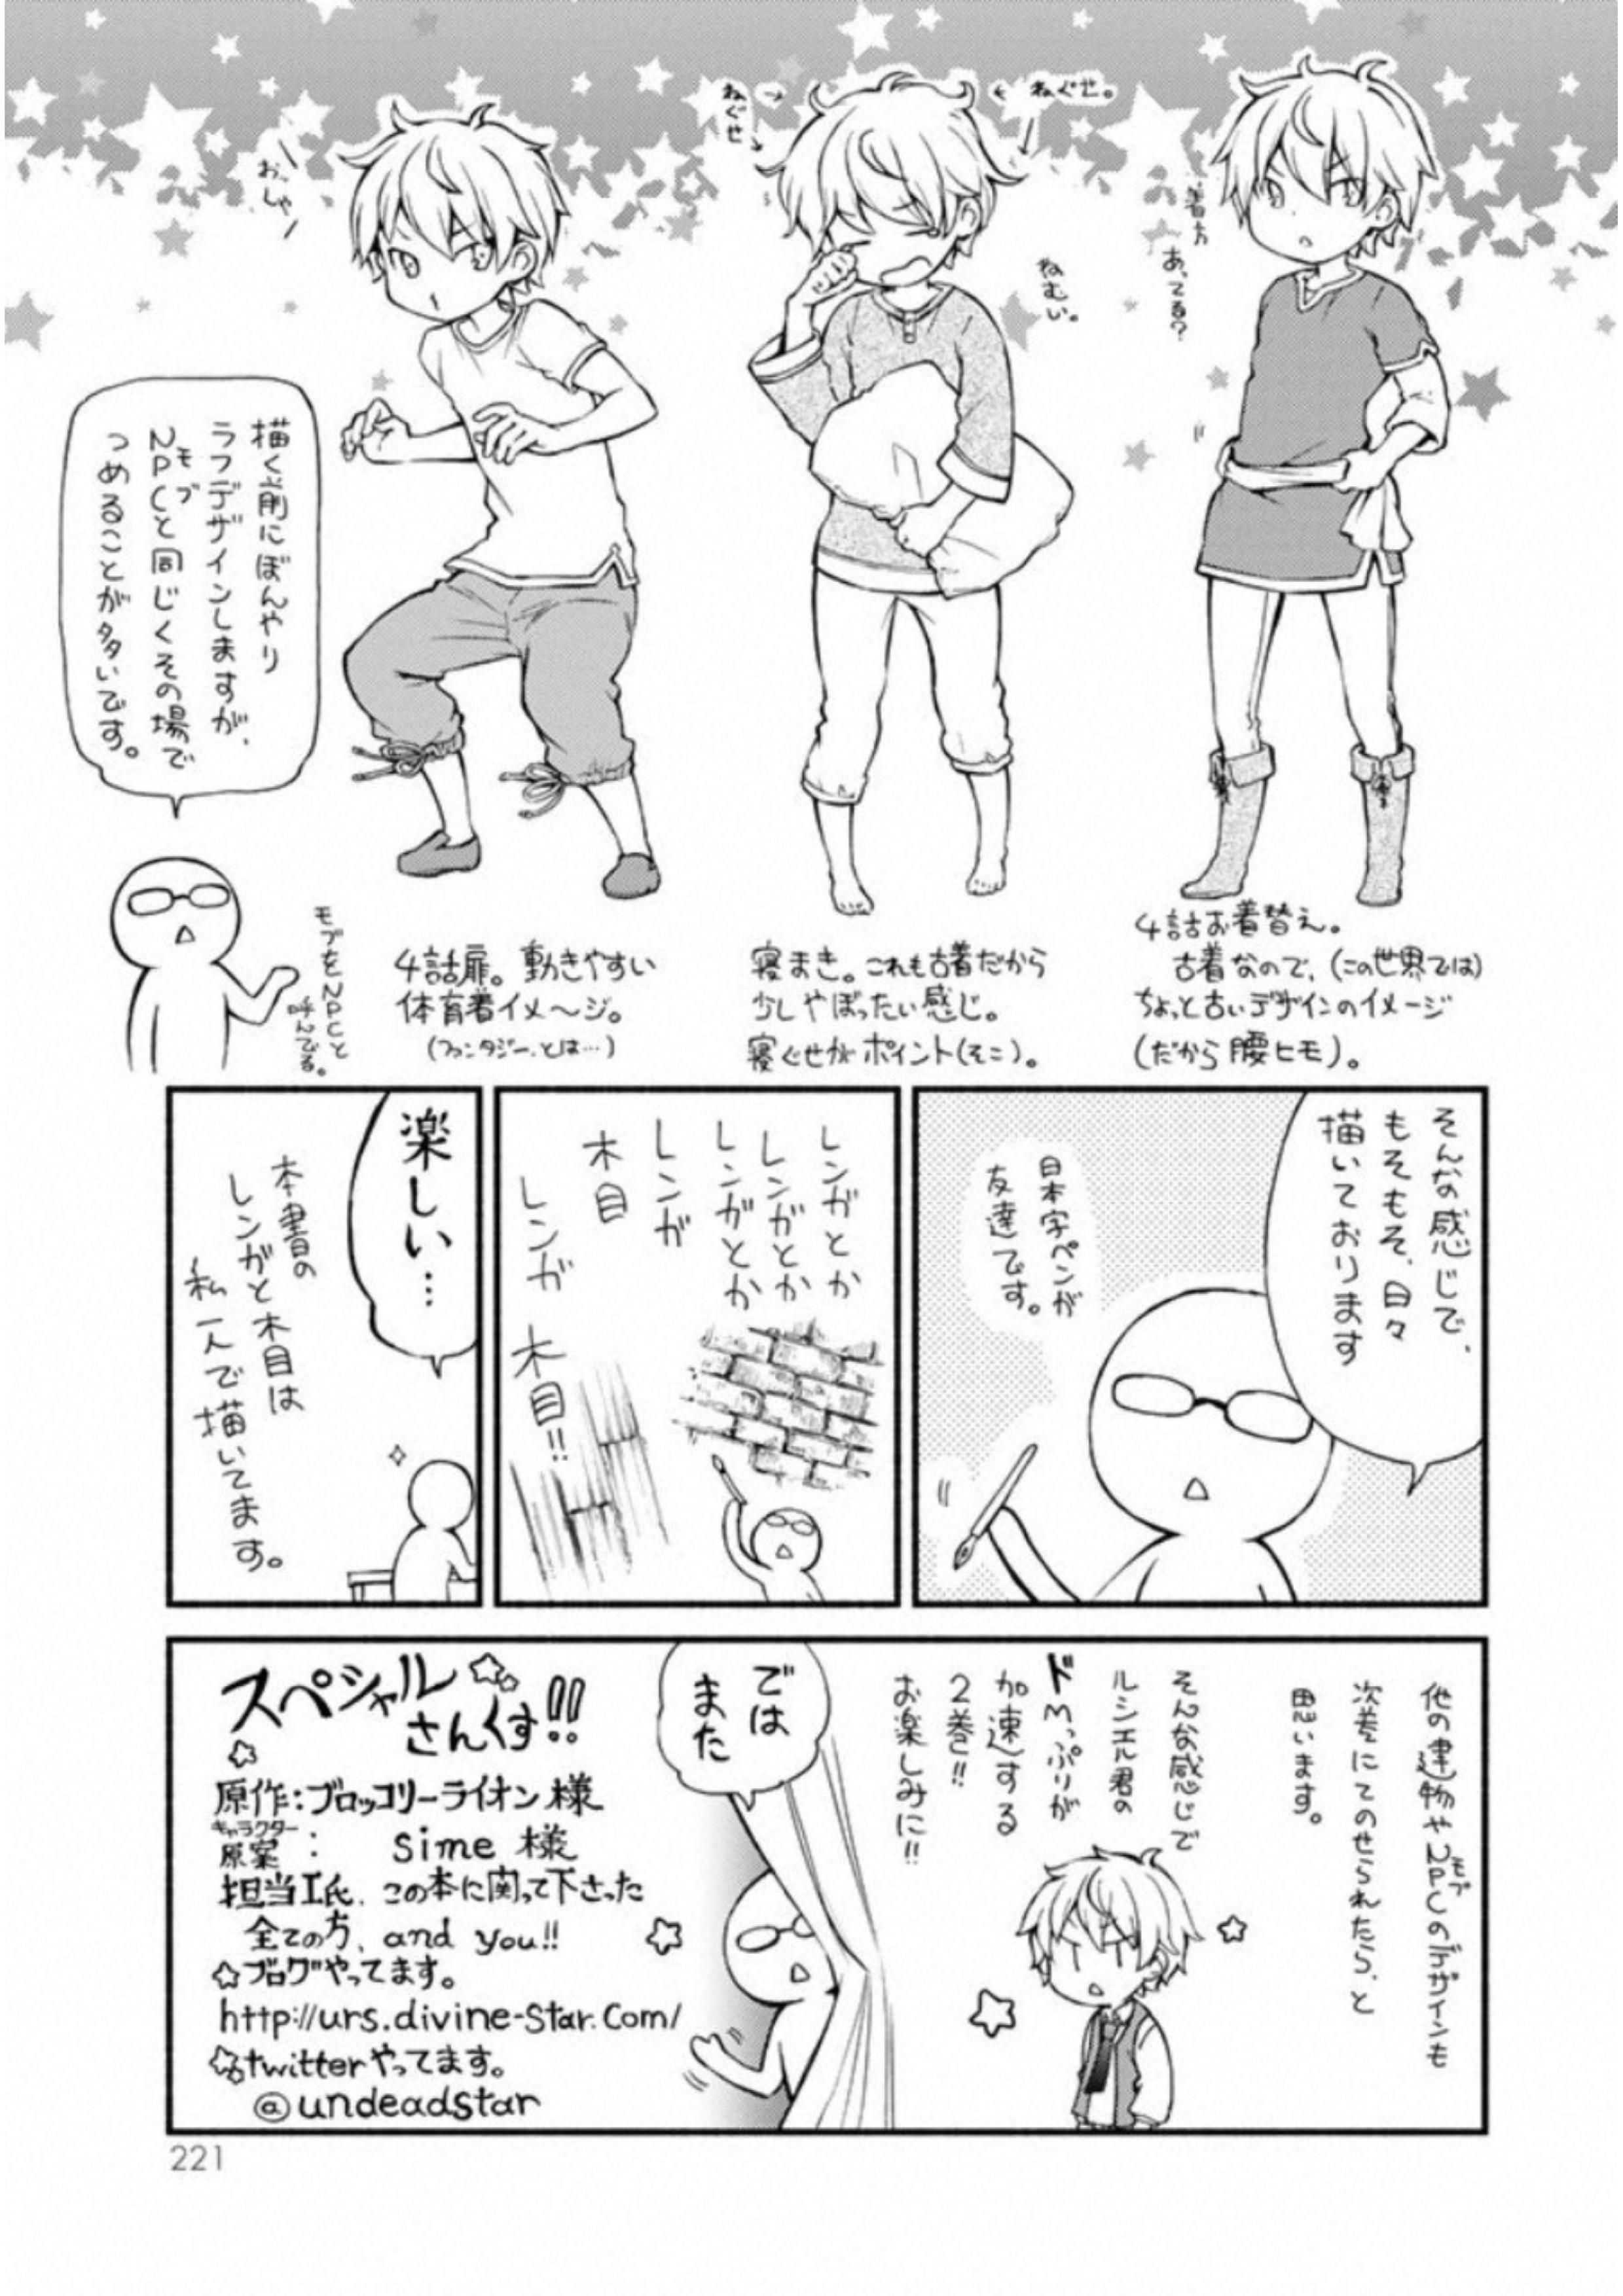 着方
あってる？
4話お着替え。
古着なので、(この世界では)
ちょっと古いデザインのイメージ
(だから腰ヒモ)。
ねぐせ。
ねぐせ
ねむい。
寝まき。これも古着だから
少しやぼったい感じ。
寝ぐせがポイント(そこ)。
おっしゃ
4話扉。動きやすい
体育着イメ〜ジ。
(ファンタジー、とは…)
描く前にぼんやり
ラフデザインしますが、
NPCと同じくその場で
モブ
つめることが多いです。
モブをNPCと
呼んでる。
そんな感じで、
もそもそ、日々
描いております
日本字ペンが
友達です。
レンガとか
レンガとか
レンガとか
レンガ
木目
レンガ 木目!!
楽しい…
本書の
レンガと木目は
私一人で描いてます。
他の建物やNPCのデザインも
モブ
次巻にてのせられたら、と
思います。
そんな感じで
ルシエル君の
ドMっぷりが
加速する
2巻!!
お楽しみに!!
では
また
スペシャル
さんくす!!
原作:ブロッコリーライオン様
キャラクター
原案: sime様
担当I氏、この本に関って下さった
全ての方、and you!!
☆ブログやってます。
http://urs.divine-star.com/
☆twitterやってます。
@undeadstar
221